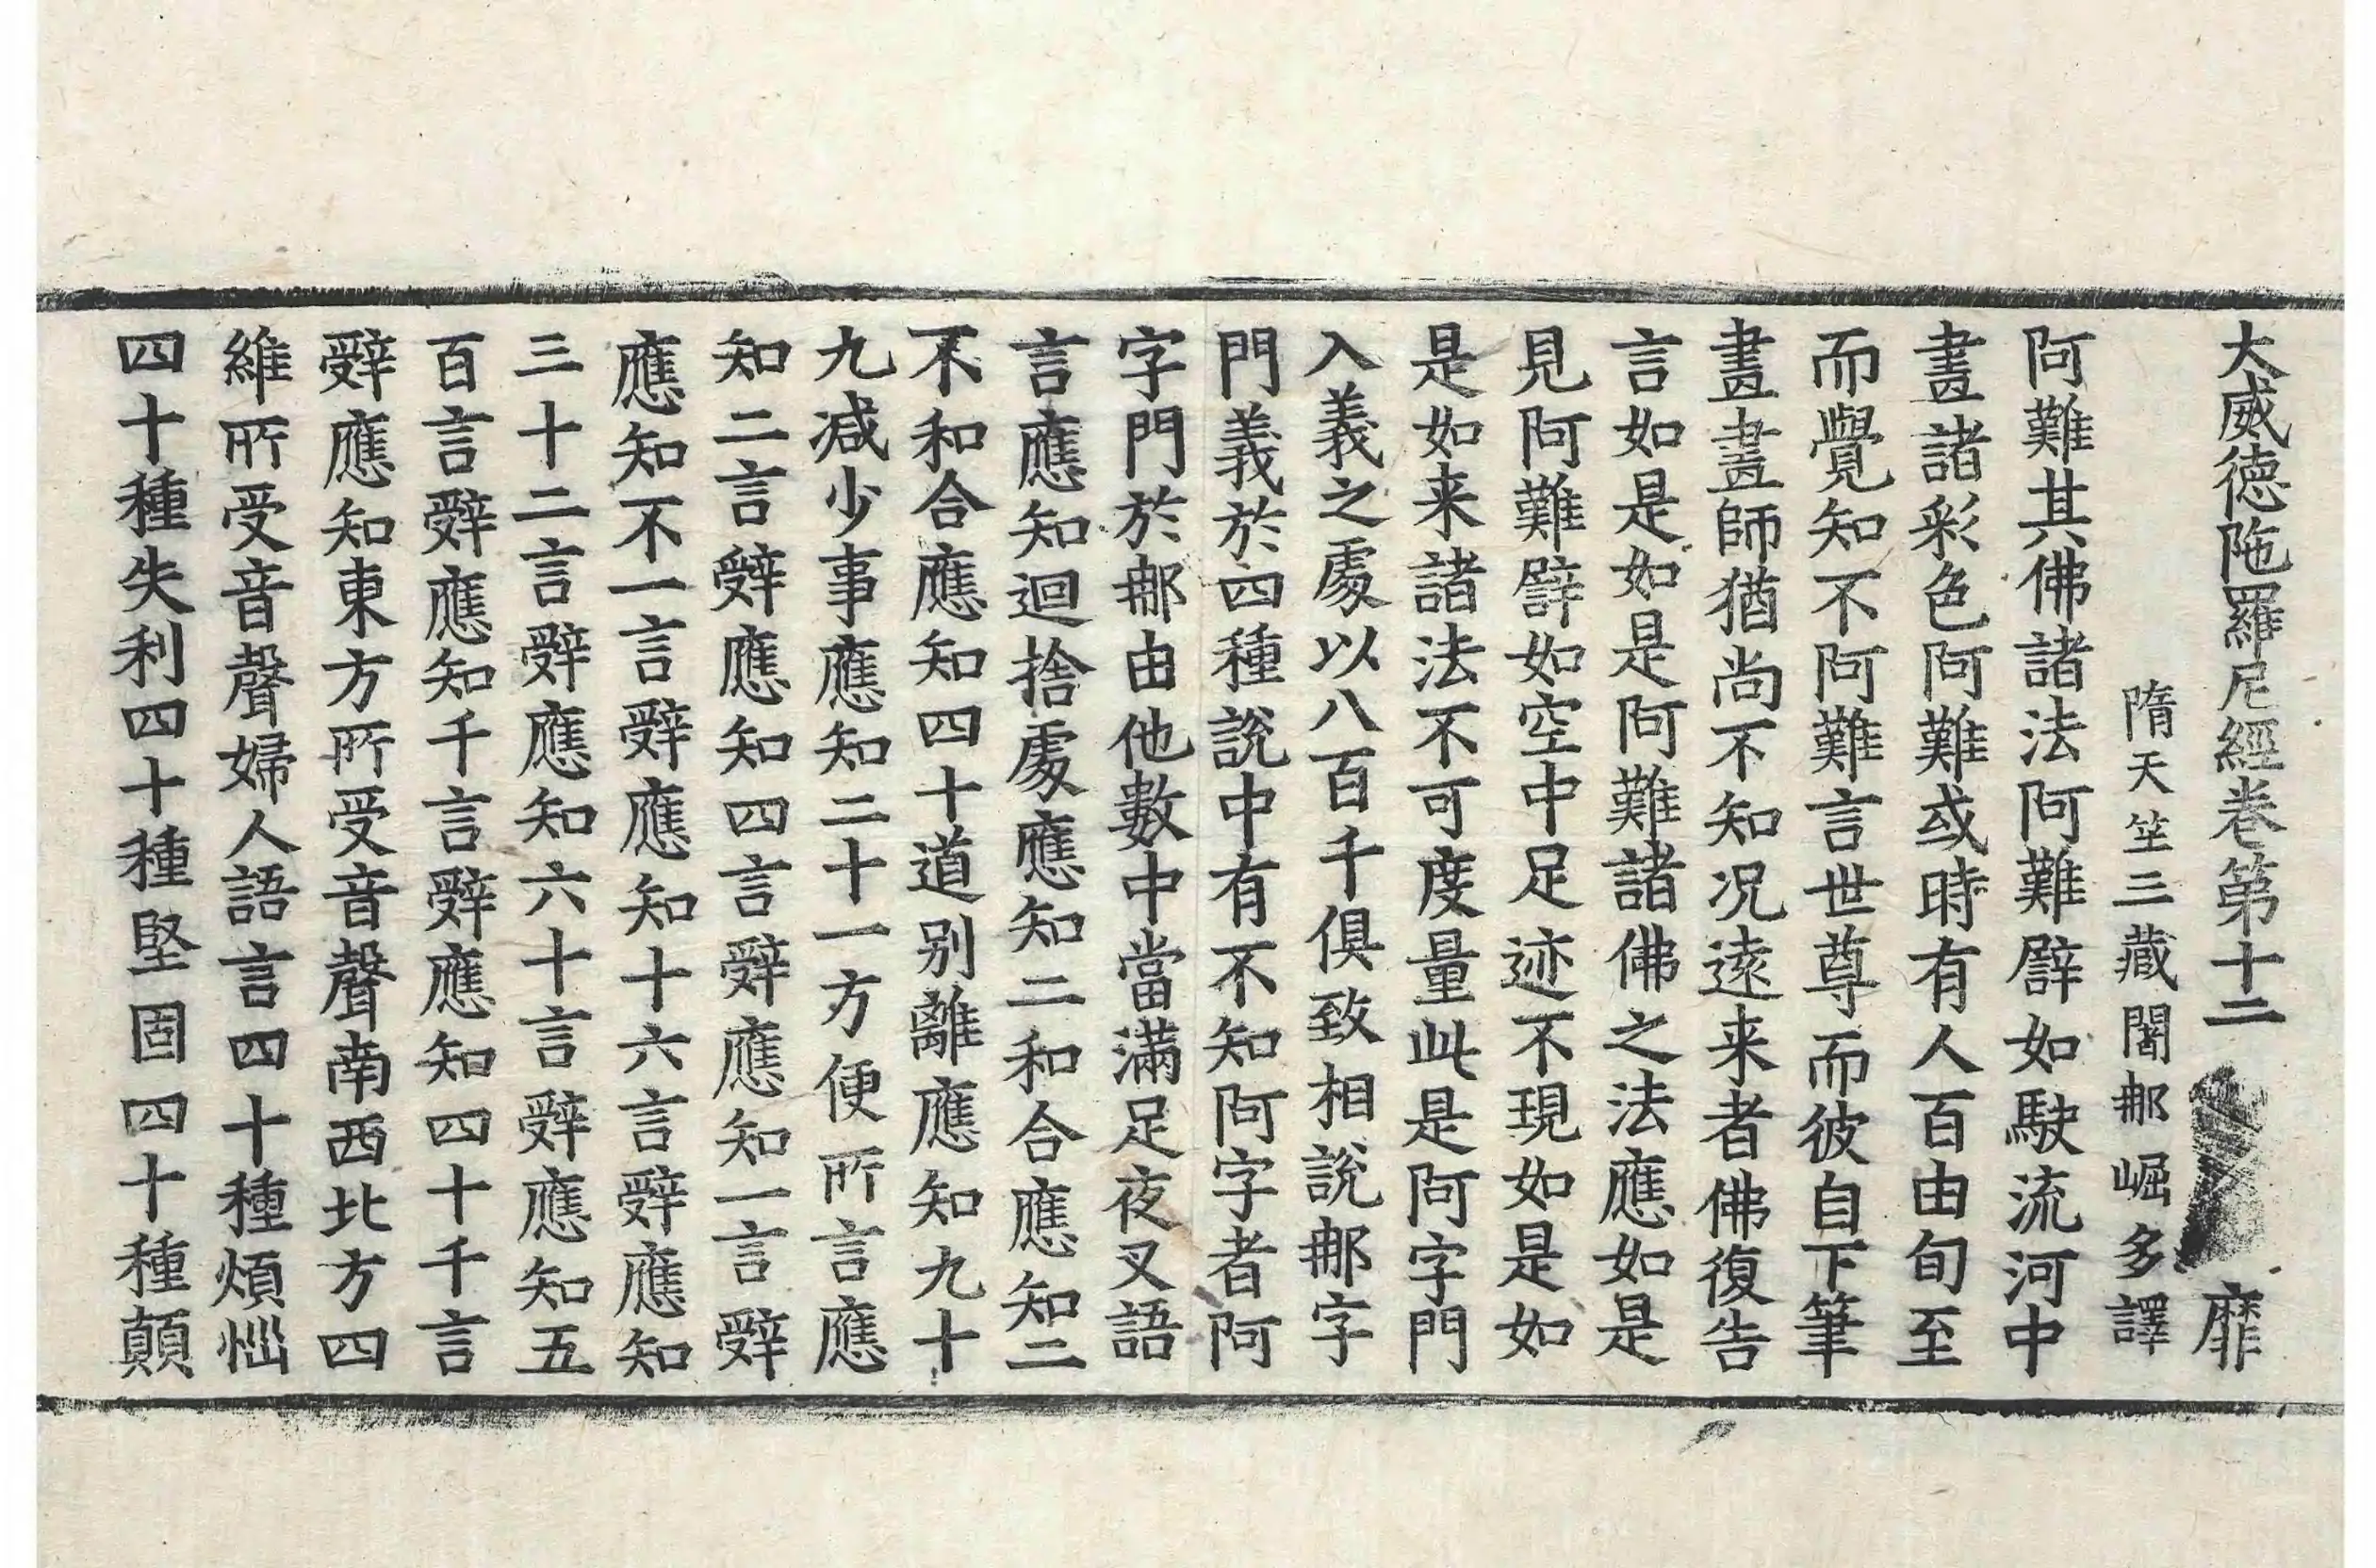 大威德陁羅尼經卷第十二 靡
隋天竺三藏闍那崛多譯
阿難其佛諸法阿難譬如駛流河中
畫諸彩色阿難或時有人百由旬至
而覺知不阿難言世尊而彼自下筆
畫畫師猶尚不知况逺来者佛復告
言如是如是阿難諸佛之法應如是
見阿難譬如空中足迹不現如是如
是如来諸法不可度量此是阿字門
入義之處以八百千俱致相說那字
門義於四種說中有不知阿字者阿
字門於那由他數中當滿足夜叉語
言應知迴捨處應知二和合應知二
不和合應知四十道别離應知九十
九减少事應知二十一方便所言應
知二言辭應知四言辭應知一言辭
應知不一言辭應知十六言辭應知
三十二言辭應知六十言辭應知五
百言辭應知千言辭應知四十千言
辭應知東方所受音聲南西北方四
維所受音聲婦人語言四十種煩惱
四十種失利四十種堅固四十種顛